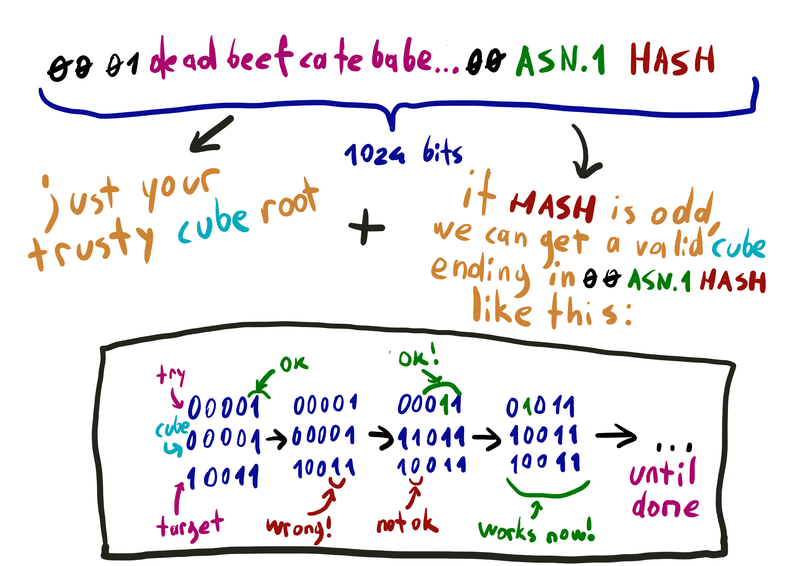 00 01 deadbeefcafebabe...00 ASN.1 HASH
1024 bits
just your
trusty cube root
+
if HASH is odd,
we can get a valid cube
ending in 00 ASN.1 HASH
like this:
try
ok
ok!
00001 00001 00011 01011
cube
00001 → 00001 → 11011 → 10011 → ...
10011 10011 10011 10011
until
done
target
wrong!
not ok
works now!